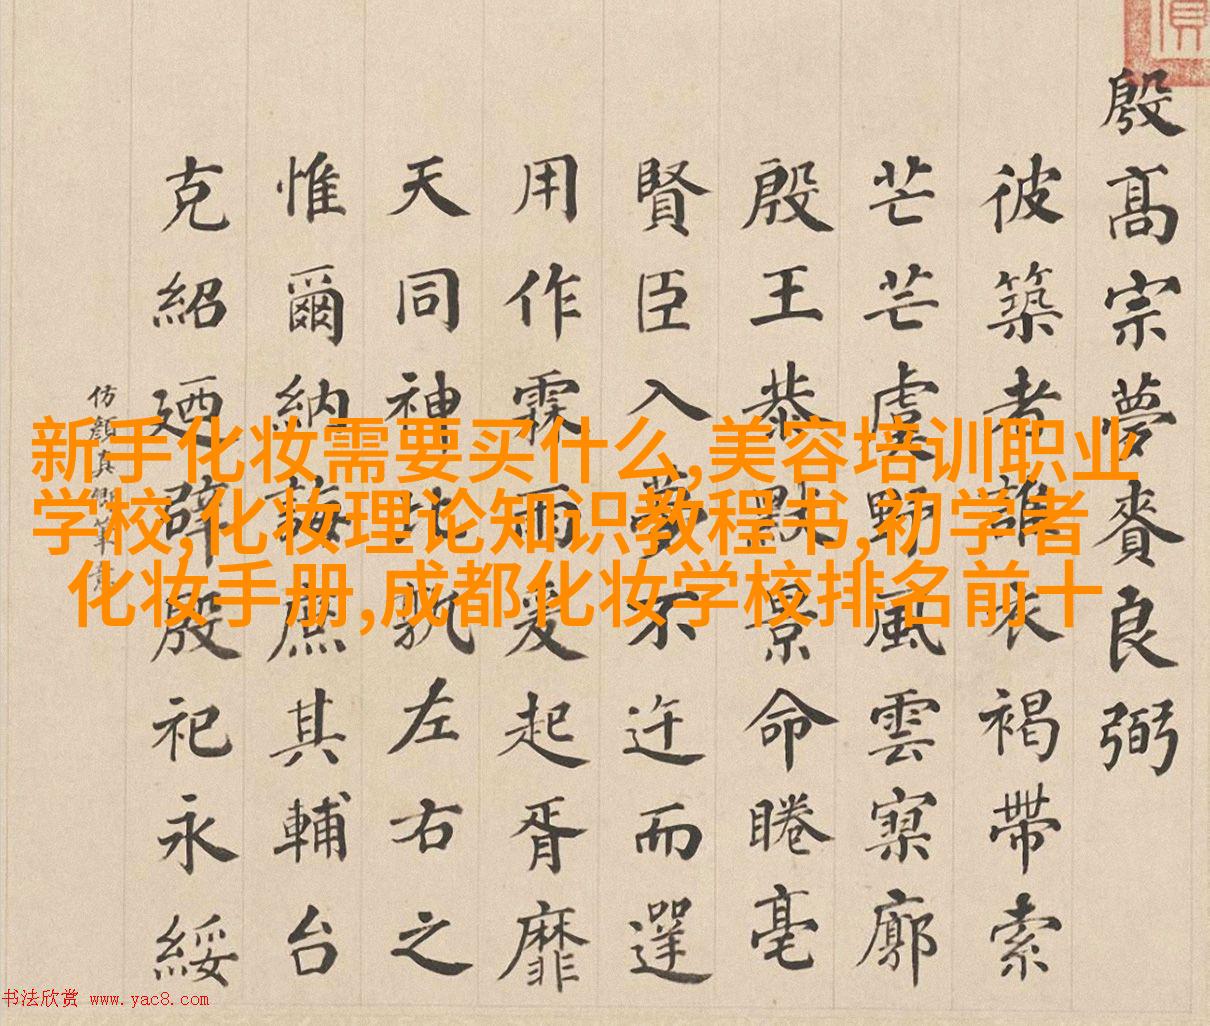 殷髙宗夢賚良弼
彼築者誰衣褐帶索
芒芒虞野風雲廓
殷王恭默景命睠亳
賢臣入夢不迕而遻
用作霖雨爰起胥靡
天同神比左右之
惟爾納誨庶其輔台
克紹迺辟殷祀永綏
仿顔真卿筆意
新手化妆需要买什么,美容培训职业
学校,化妆理论知识教程书,初学者
化妆手册,成都化妆学校排名前十
书法欣赏 www.yac8.com